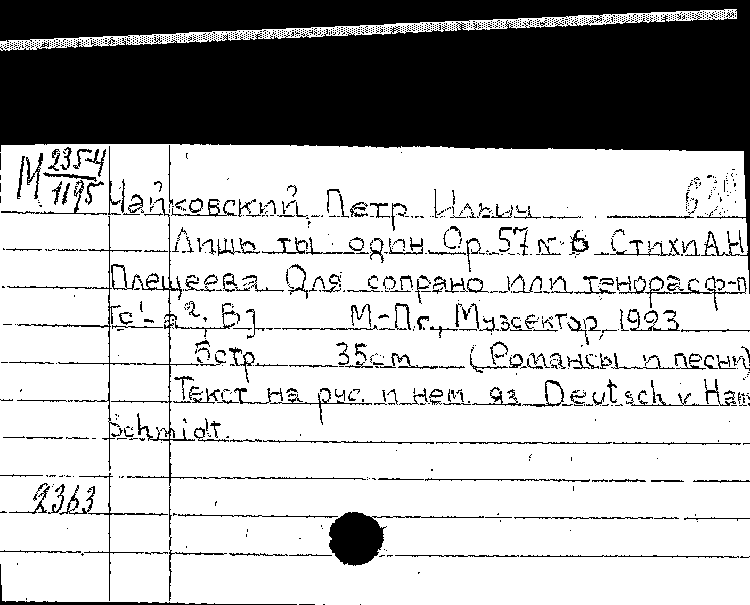 М 235-4
1195
Чайковский, Петр Ильич
Лишь ты один. Op. 57 № 6 Стихи А.Н.
Плещеева. Для сопрано или тенора с ф-п
[c¹-a²; B] М.-Пг., Музсектор, 1923
5 стр. 35 cm (Романсы и песни)
Текст на рус. и нем. яз. Deutsch v. Hans
Schmidt.
2363